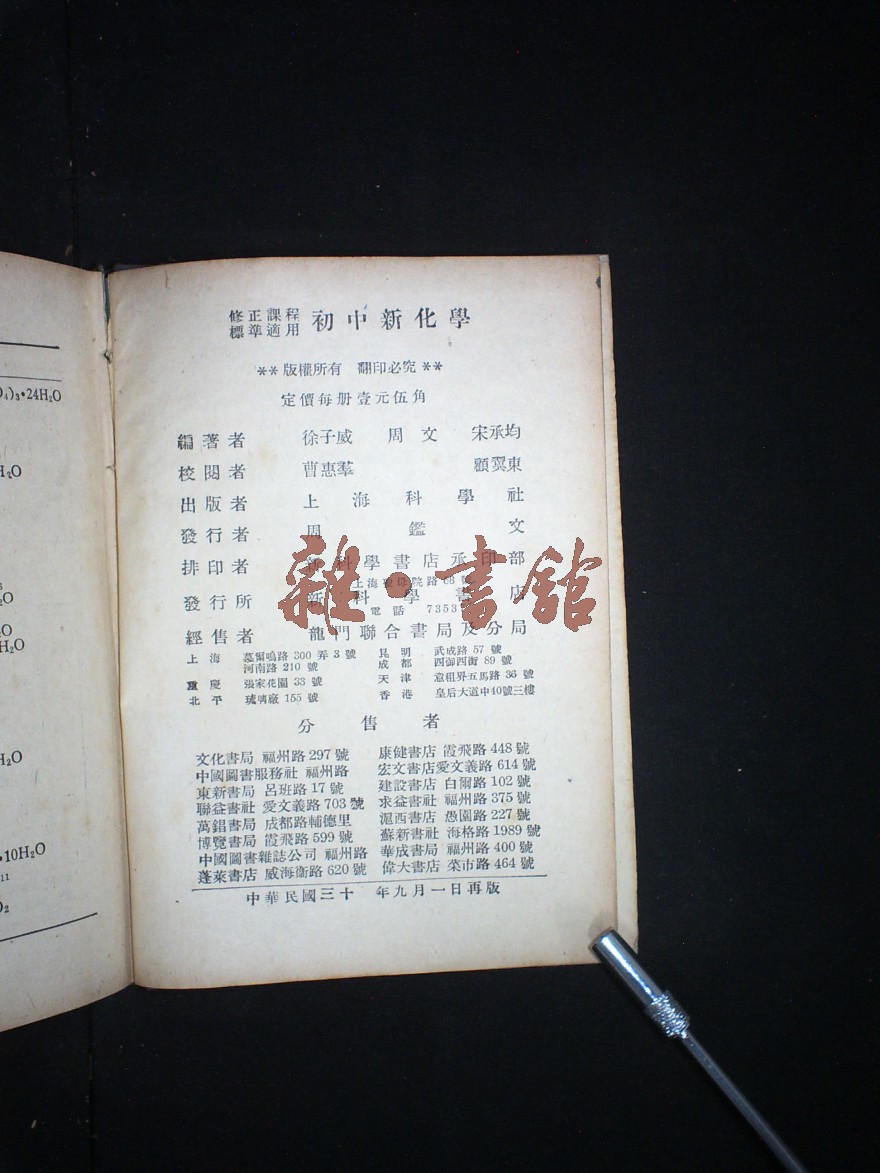 修正課程
標準適用 初中新化學
** 版權所有 翻印必究 **
定價每册壹元伍角
編著者 徐子威 周文 宋承均
校閱者 曹惠羣 顧翼東
出版者 上海科學社
發行者 周鑑文
排印者 新科學書店承印部
上海聖母院路68號
發行所 新科學書店
電話 7353
經售者 龍門聯合書局及分局
上海 慕爾鳴路 300 弄 3 號 昆明 武成路 57 號
河南路 210 號 成都 西御西街 89 號
重慶 張家花園 33 號 天津 意租界五馬路 36 號
北平 琉璃廠 155 號 香港 皇后大道中40號三樓
分售者
文化書局 福州路 297 號 康健書店 霞飛路 448 號
中國圖書服務社 福州路 宏文書店 愛文義路 614 號
東新書局 呂班路 17 號 建設書店 白爾路 102 號
聯益書社 愛文義路 703 號 求益書社 福州路 375 號
萬錩書局 成都路輔德里 滬西書店 愚園路 227 號
博覽書局 霞飛路 599 號 蘇新書社 海格路 1989 號
中國圖書雜誌公司 福州路 華成書局 福州路 400 號
蓬萊書店 威海衛路 620 號 偉大書店 菜市路 464 號
中華民國三十 年九月一日再版
雜·書館
₄)₃•24H₂O
H₂O
•10H₂O